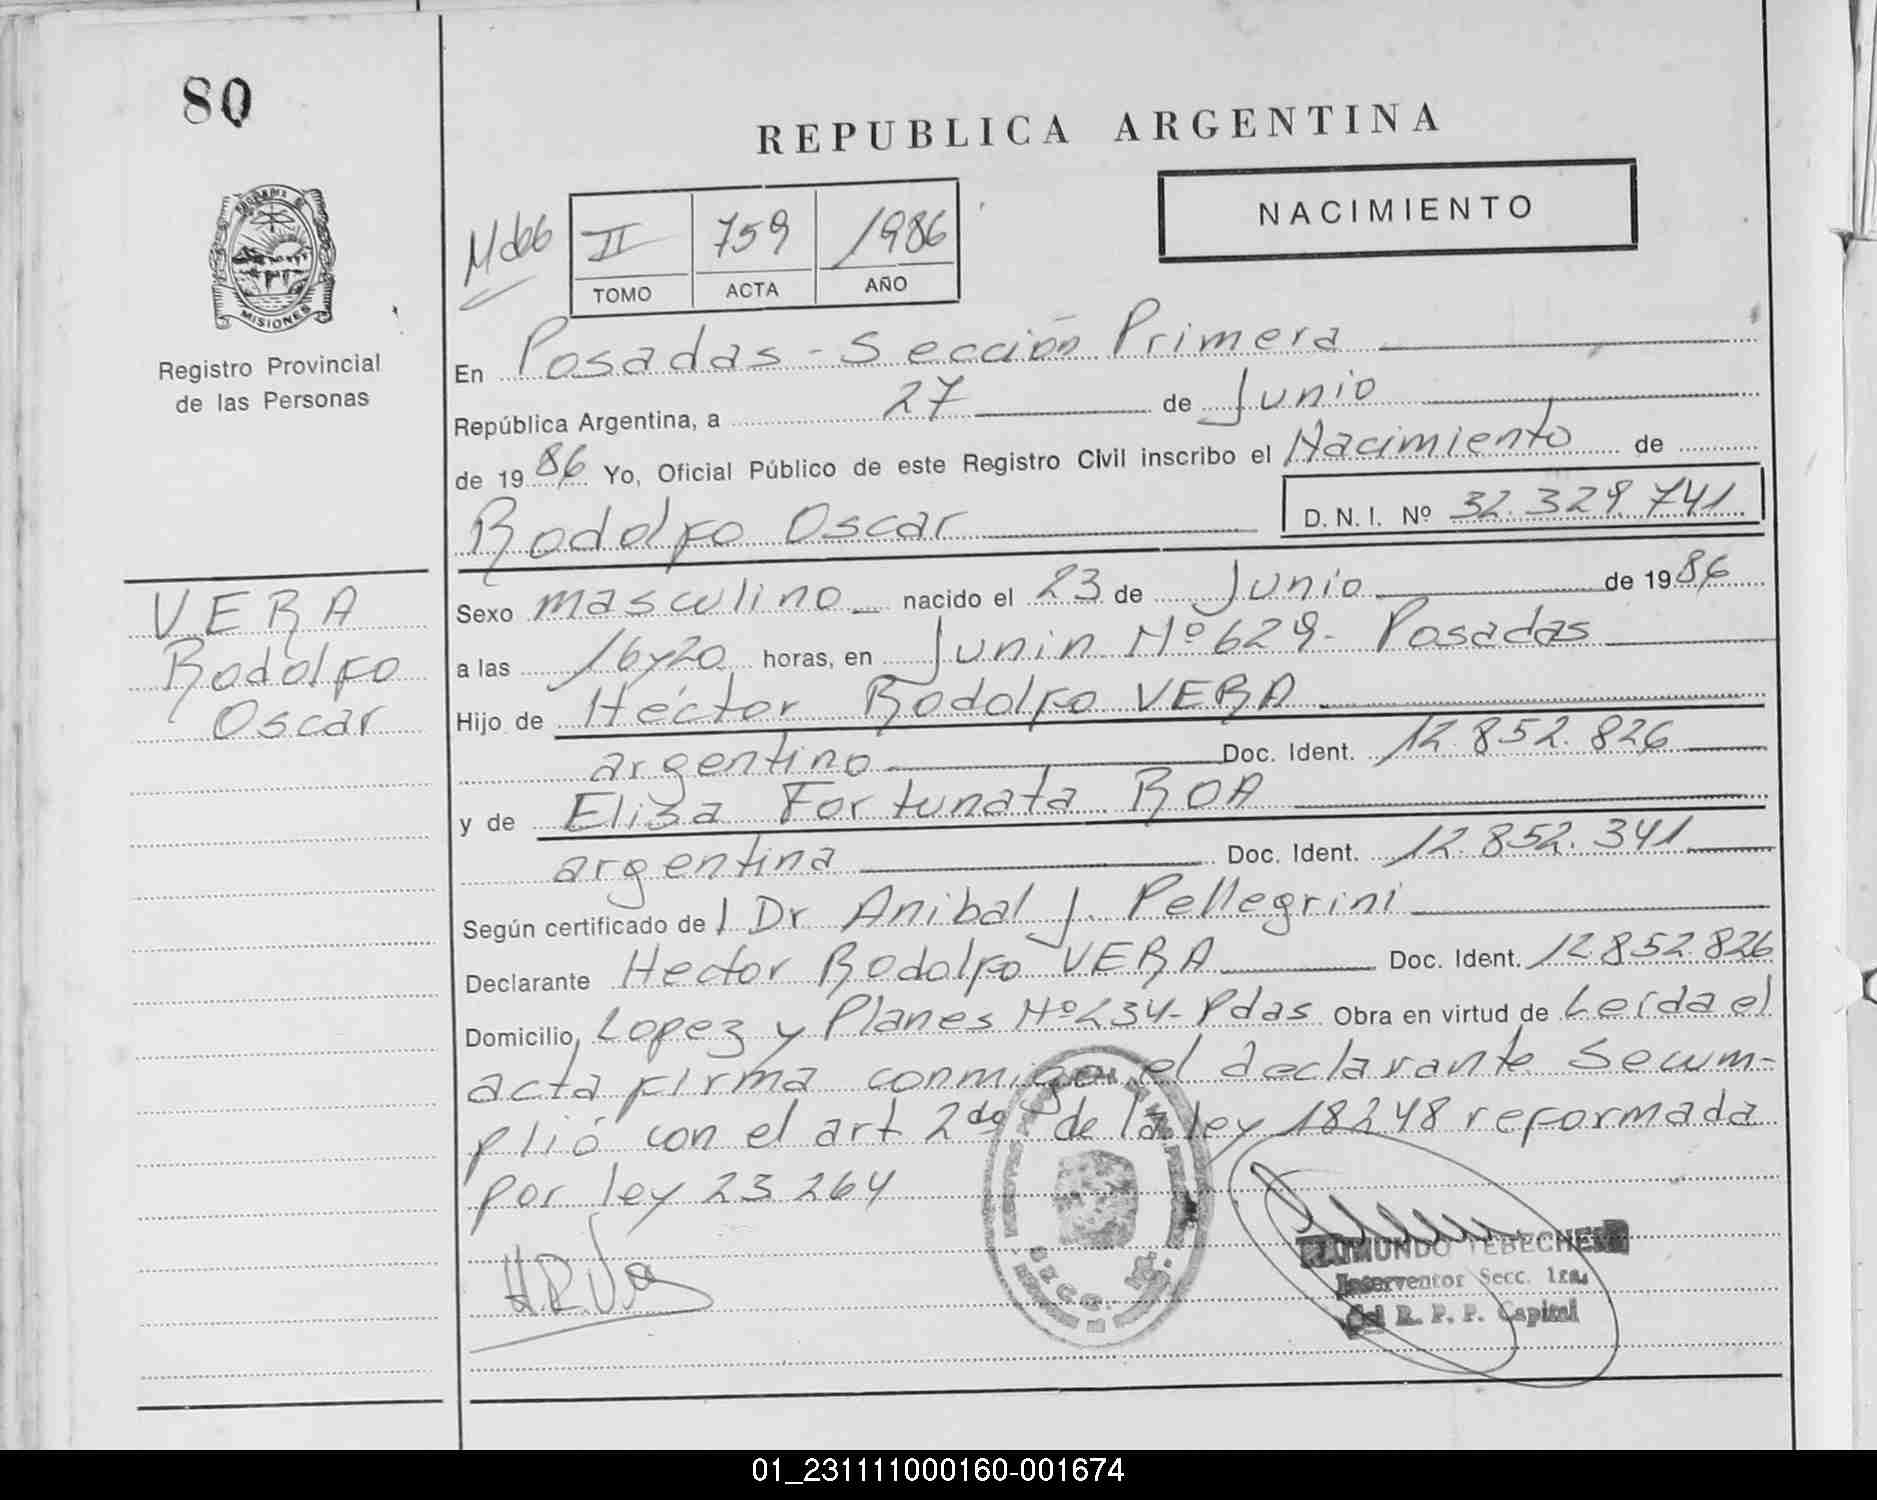 80
REPUBLICA ARGENTINA
NACIMIENTO
II 759 1986
TOMO ACTA AÑO
MISIONES
Registro Provincial
de las Personas
En Posadas - Sección Primera
República Argentina, a 27 de Junio
de 1986 Yo, Oficial Público de este Registro Civil inscribo el Nacimiento de
Rodolfo Oscar D. N. I. Nº 32.329.741
VERA
Rodolfo
Oscar
Sexo masculino nacido el 23 de Junio de 1986
a las 16y20 horas, en Junin Nº 629- Posadas
Hijo de Héctor Rodolfo VERA
argentino Doc. Ident. 12.852.826
y de Eliza Fortunata ROA
argentina Doc. Ident. 12.852.341
Según certificado de l Dr Anibal J. Pellegrini
Declarante Hector Rodolfo VERA Doc. Ident. 12852826
Domicilio Lopez y Planes Nº 234- Pdas Obra en virtud de Leída el
acta firma conmigo el declarante Se cum-
plió con el art 2do de la ley 18248 reformada
por ley 23264
RAIMUNDO YEBECHESN
Interventor Secc. 1ra.
del R. P. P. Capital
01_231111000160-001674